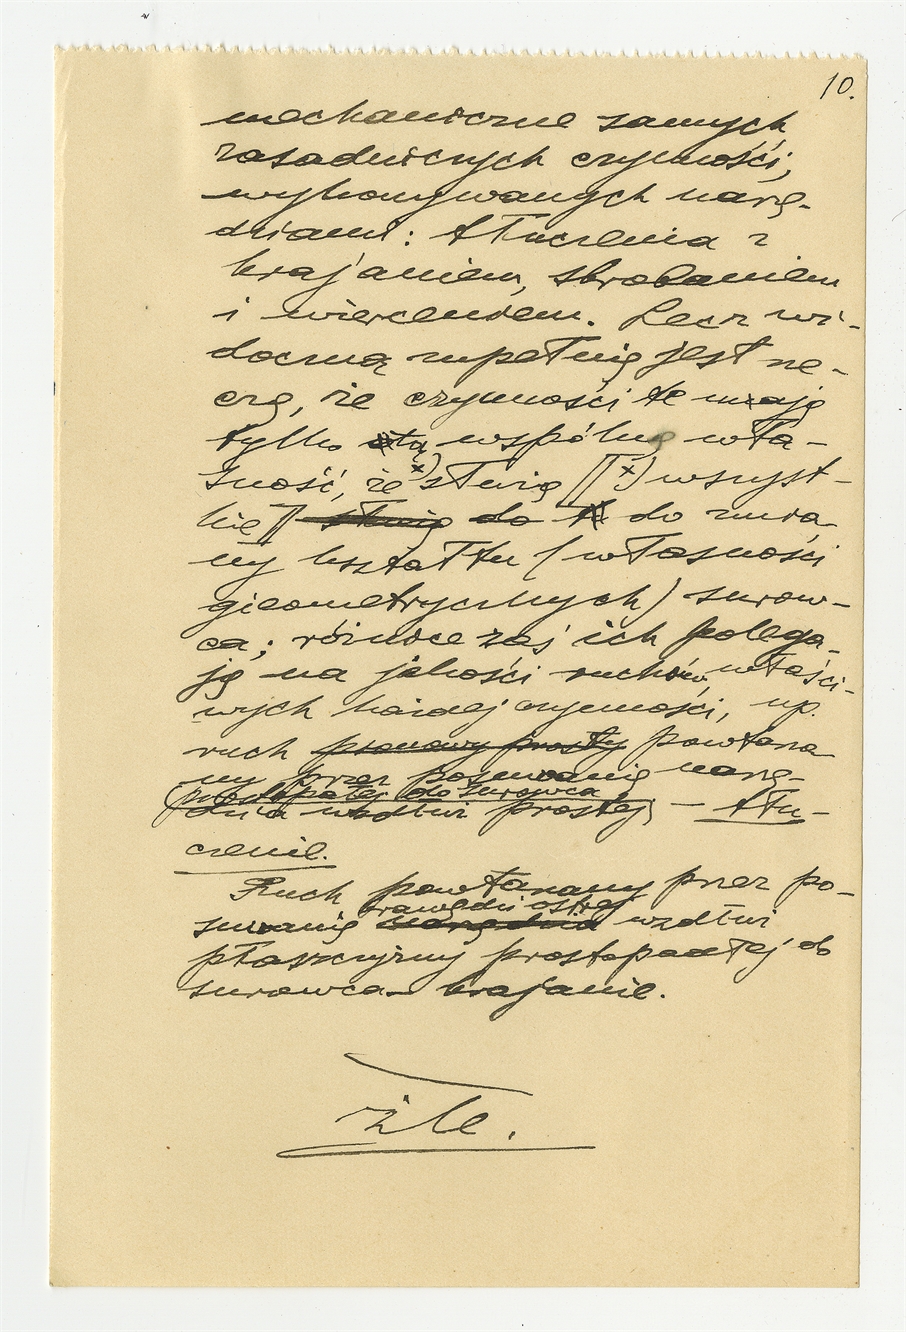 10.
mechaniczne samych
zasadniczych czynności,
wykonywanych narzę-
dziami: tłuczenia z
krajaniem, skrobaniem
i wierceniem. Lecz wi-
doczną zupełnie jest rze-
czą, że czynności te mają
tylko tą wspólną wła-
sność, że x) służą [[x) wszyst-
kie]] służą do do zmia-
ny kształtu (własności
gieometrycznych) surow-
ca; różnice zaś ich polega-
ją na jakości ruchów, właści-
wych każdej czynności, np.
ruch pionowy prosty powtarza
ny przez posuwanie narzę-
prostopadłej do surowca
dzia wzdłuż prostej, — tłu-
czenie.
Ruch powtarzany przez po-
krawędzi ostrej
suwanie narzędzia wzdłuż
płaszczyzny prostopadłej do
surowca — krajanie.
źle.